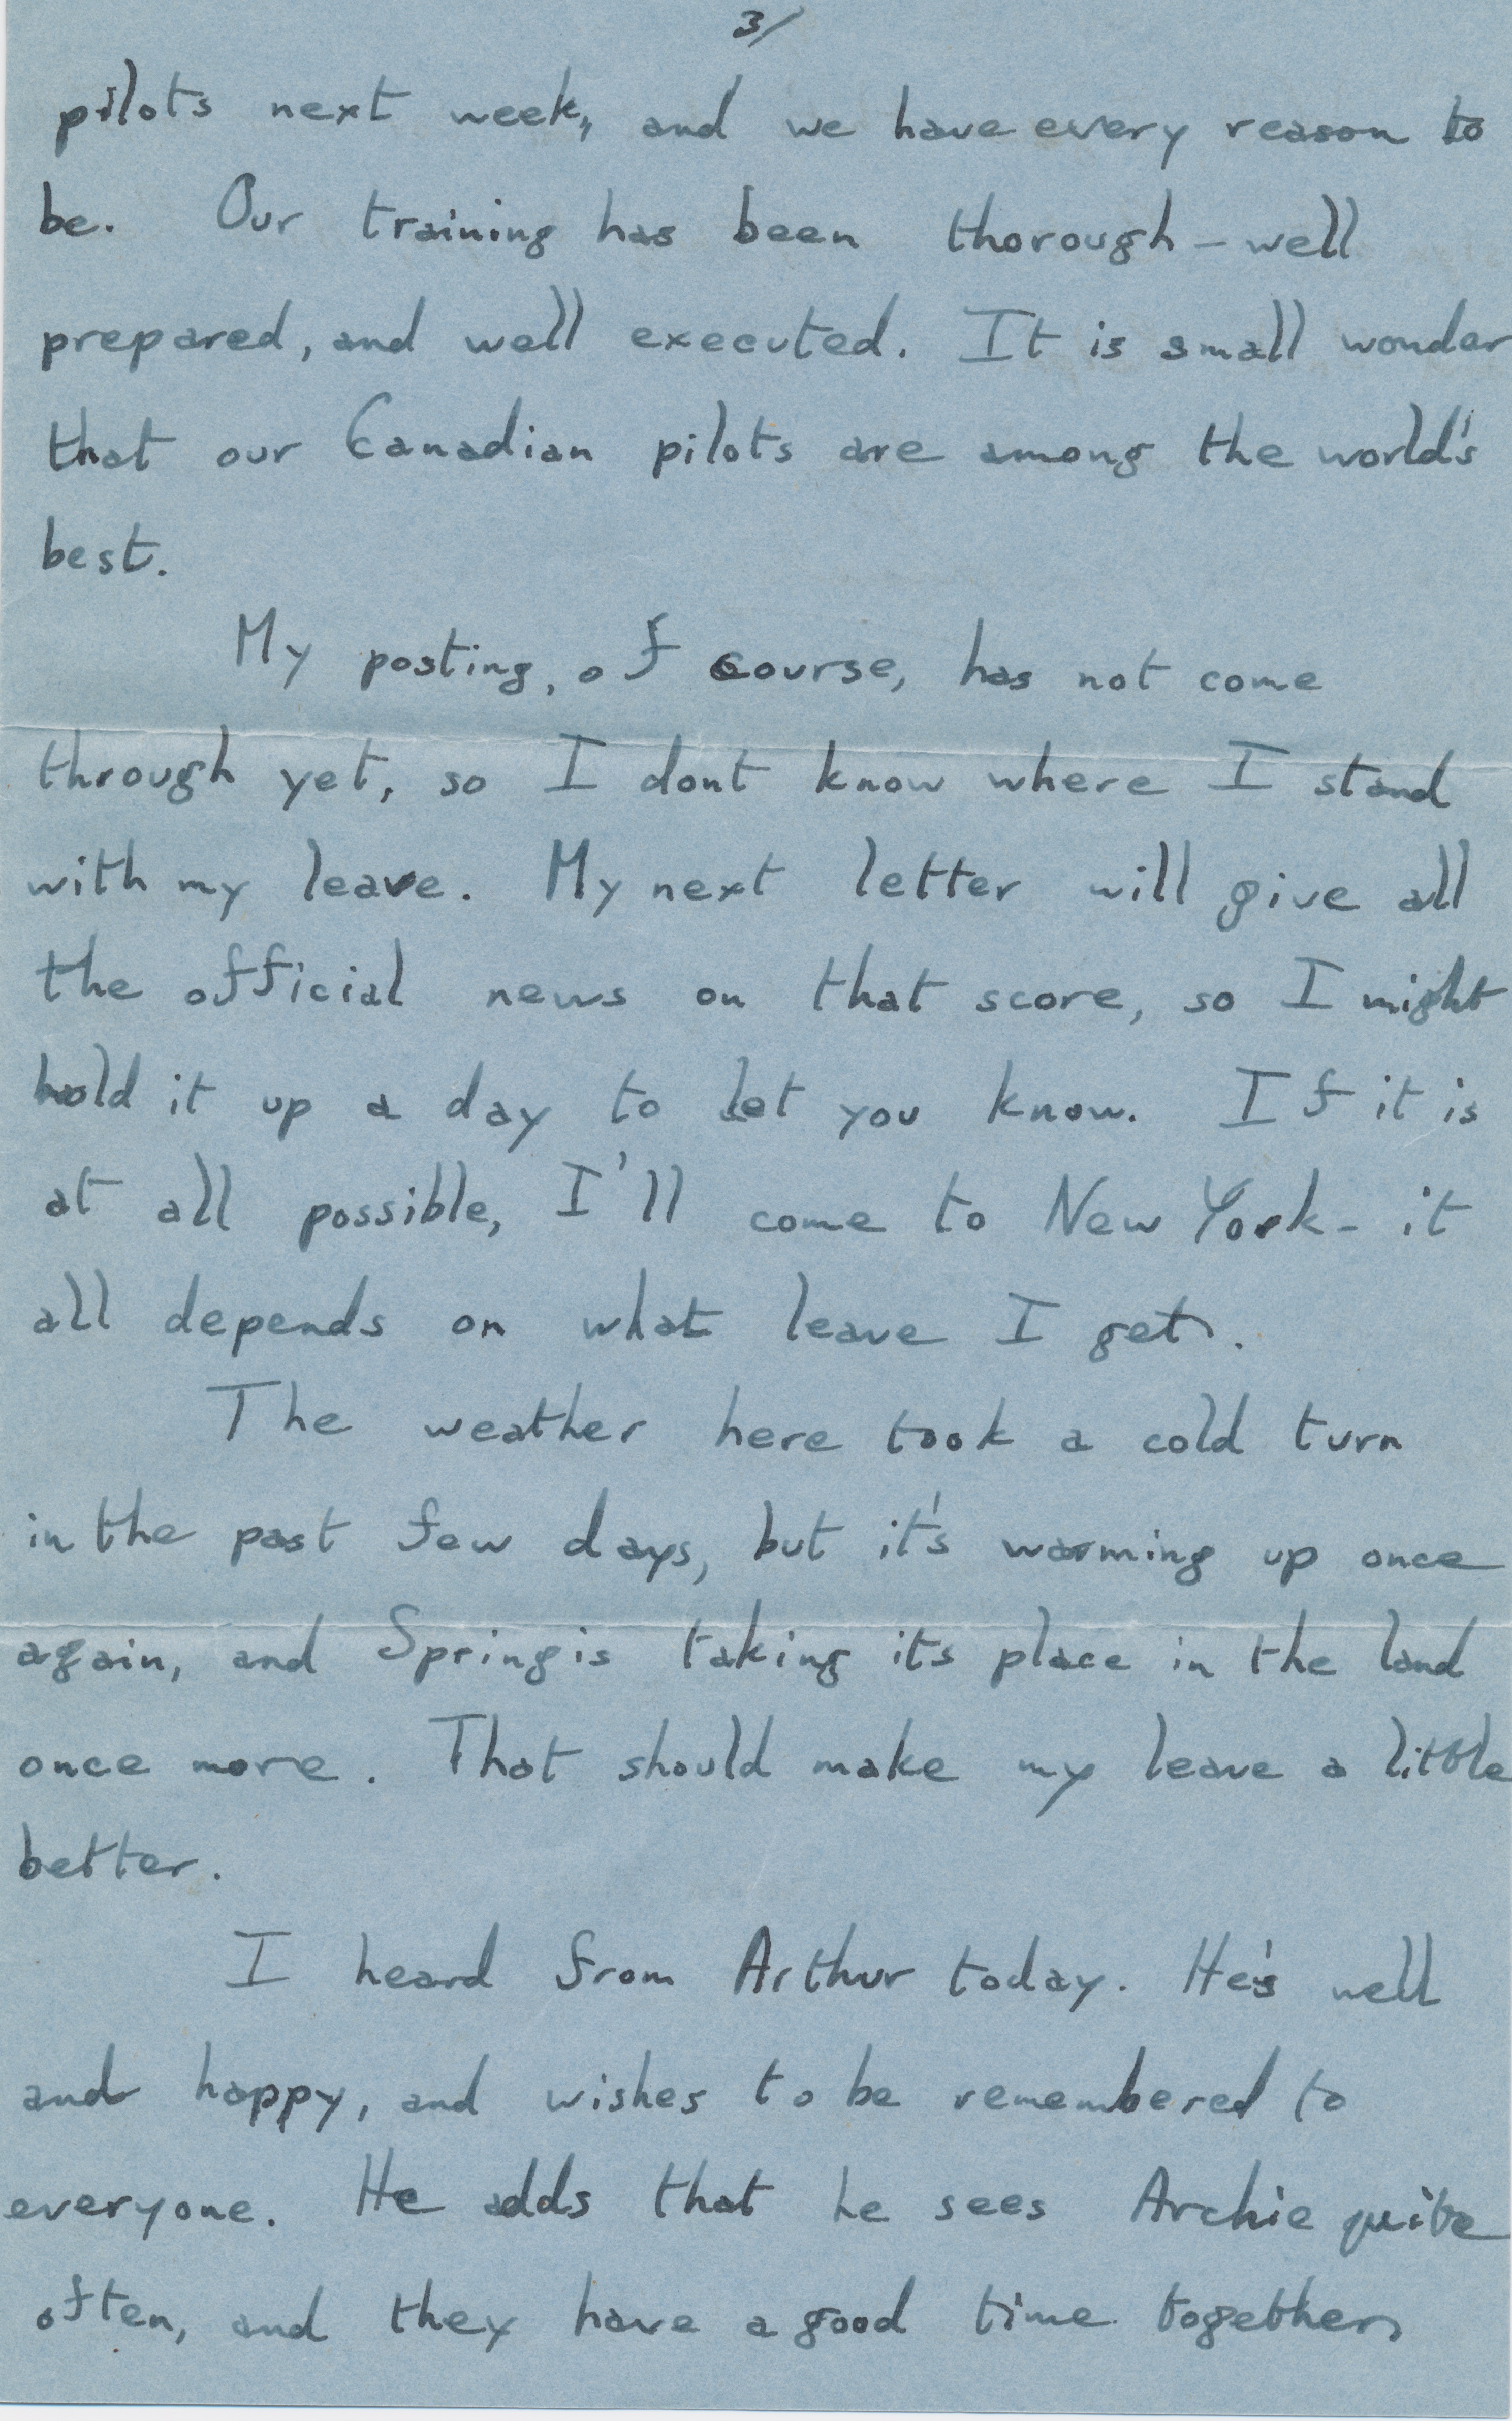 3/
pilots next week, and we have every reason to
be. Our training has been thorough - well
prepared, and well executed. It is small wonder
that our Canadian pilots are among the world's
best.
My posting, of course, has not come
through yet, so I dont know where I stand
with my leave. My next letter will give all
the official news on that score, so I might
hold it up a day to let you know. If it is
at all possible, I'll come to New York - it
all depends on what leave I get.
The weather here took a cold turn
in the past few days, but it's warming up once
again, and Spring is taking its place in the land
once more. That should make my leave a little
better.
I heard from Arthur today. He's well
and happy, and wishes to be remembered to
everyone. He adds that he sees Archie quite
often, and they have a good time together,